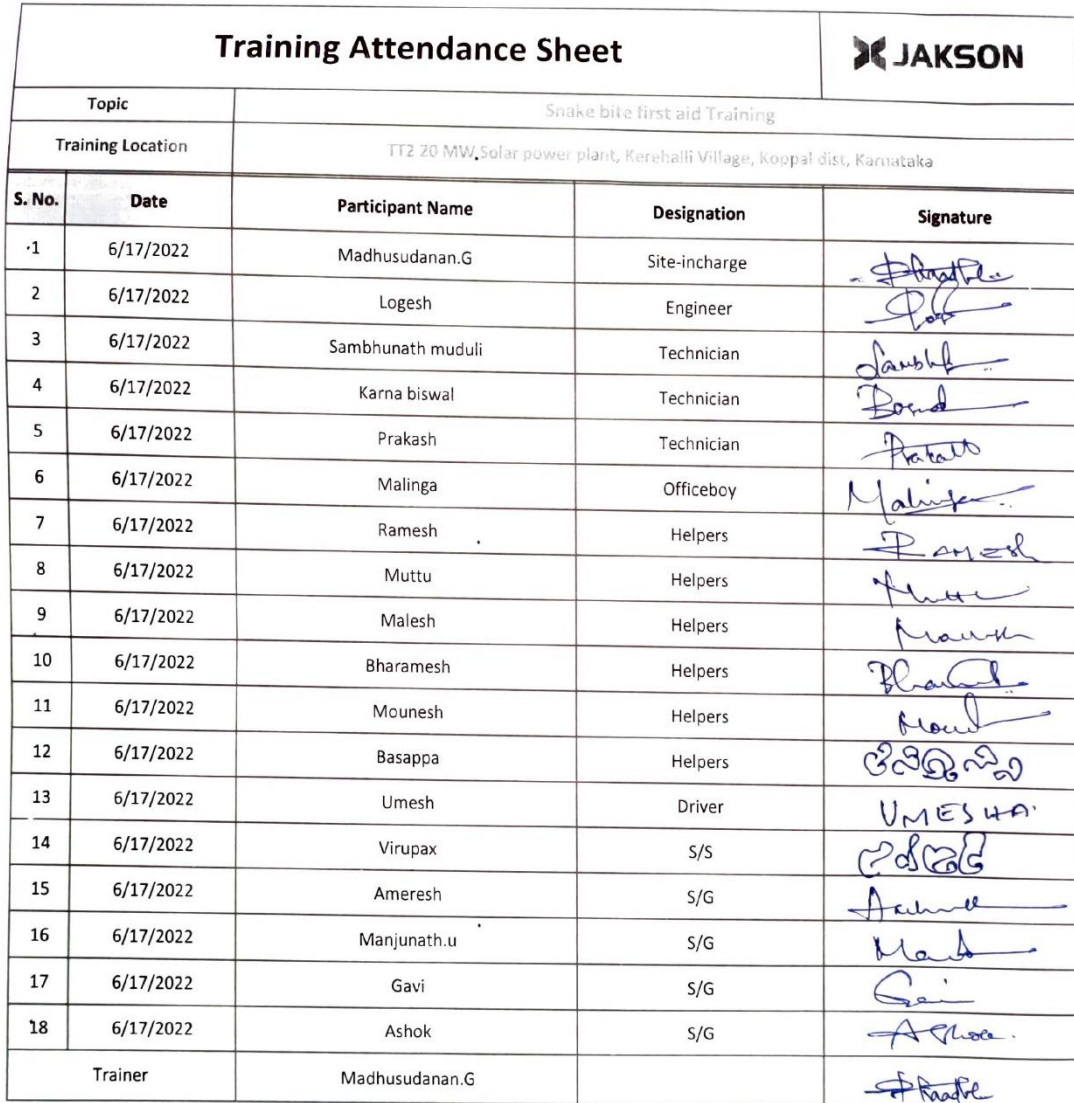 Training Attendance Sheet
JAKSON
Topic Snake bite first aid Training
Training Location TT2 20 MW Solar power plant, Kerehalli Village, Koppal dist, Karnataka
S. No. Date Participant Name Designation Signature
1 6/17/2022 Madhusudanan.G Site-incharge
2 6/17/2022 Logesh Engineer
3 6/17/2022 Sambhunath muduli Technician
4 6/17/2022 Karna biswal Technician
5 6/17/2022 Prakash Technician
6 6/17/2022 Malinga Officeboy Malinga
7 6/17/2022 Ramesh Helpers RAMESh
8 6/17/2022 Muttu Helpers
9 6/17/2022 Malesh Helpers
10 6/17/2022 Bharamesh Helpers
11 6/17/2022 Mounesh Helpers
12 6/17/2022 Basappa Helpers
13 6/17/2022 Umesh Driver UMESHA.
14 6/17/2022 Virupax S/S
15 6/17/2022 Ameresh S/G
16 6/17/2022 Manjunath.u S/G
17 6/17/2022 Gavi S/G
18 6/17/2022 Ashok S/G
Trainer Madhusudanan.G